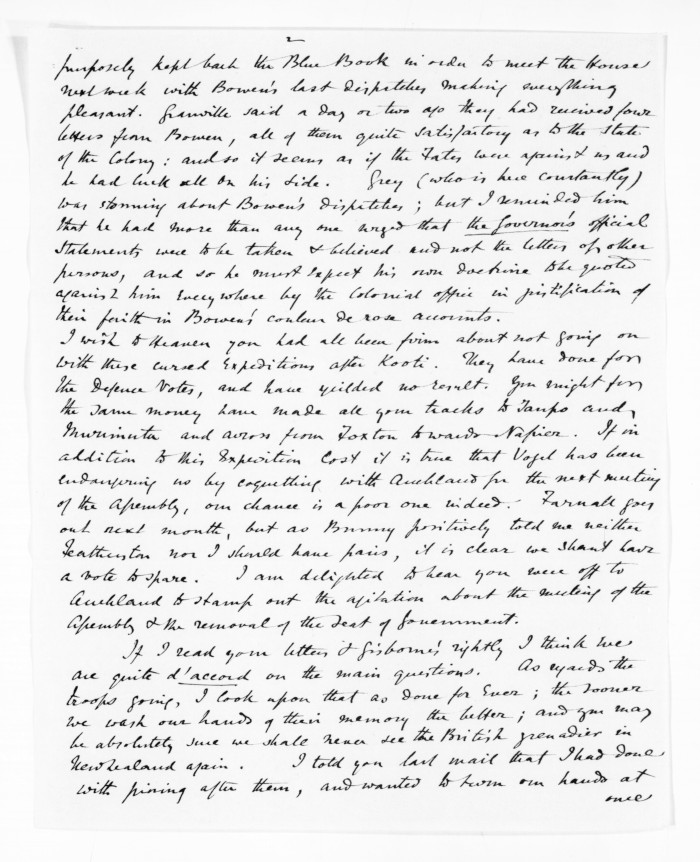 2
purposely kept back the Blue Book in order to meet the House
next week with Bowen's last dispatches making everything
pleasant. Granville said a day or two ago they had received four
letters from Bowen, all of them quite satisfactory as to the state
of the Colony: and so it seems as if the Fates were against us and
he had luck all on his side. Grey (who is here constantly)
was storming about Bowen's dispatches; but I reminded him
that he had more than any one urged that the Governor's official
statements were to be taken & believed and not the letters of other
persons, and so he must expect his own doctrine to be quoted
against him everywhere by the Colonial office in justification of
their faith in Bowen's couleur de rose accounts.
I wish to Heaven you had all been firm about not going on
with these cursed Expeditions after Kooti. They have done for
the Defence Votes, and have yielded no result. You might for
the same money have made all your tracks to Taupo and
Murimutu and across from Foxton towards Napier. If in
addition to this Expedition Cost it is true that Vogel has been
endangering us by coquetting with Auckland for the next meeting
of the Assembly, our chance is a poor one indeed. Farnall goes
out next month, but as Bunny positively told me neither
Featherston nor I should have pairs, it is clear we shant have
a vote to spare. I am delighted to hear you were off to
Auckland to stamp out the agitation about the meeting of the
Assembly & the removal of the Seat of Government.
If I read your letters & Gisborne's rightly I think we
are quite d'accord on the main questions. As regards the
troops going, I look upon that as done for Ever; the sooner
we wash our hands of their memory the better; and you may
be absolutely sure we shall never see the British grenadier in
New Zealand again. I told you last mail that I had done
with pining after them, and wanted to turn our hands at
once